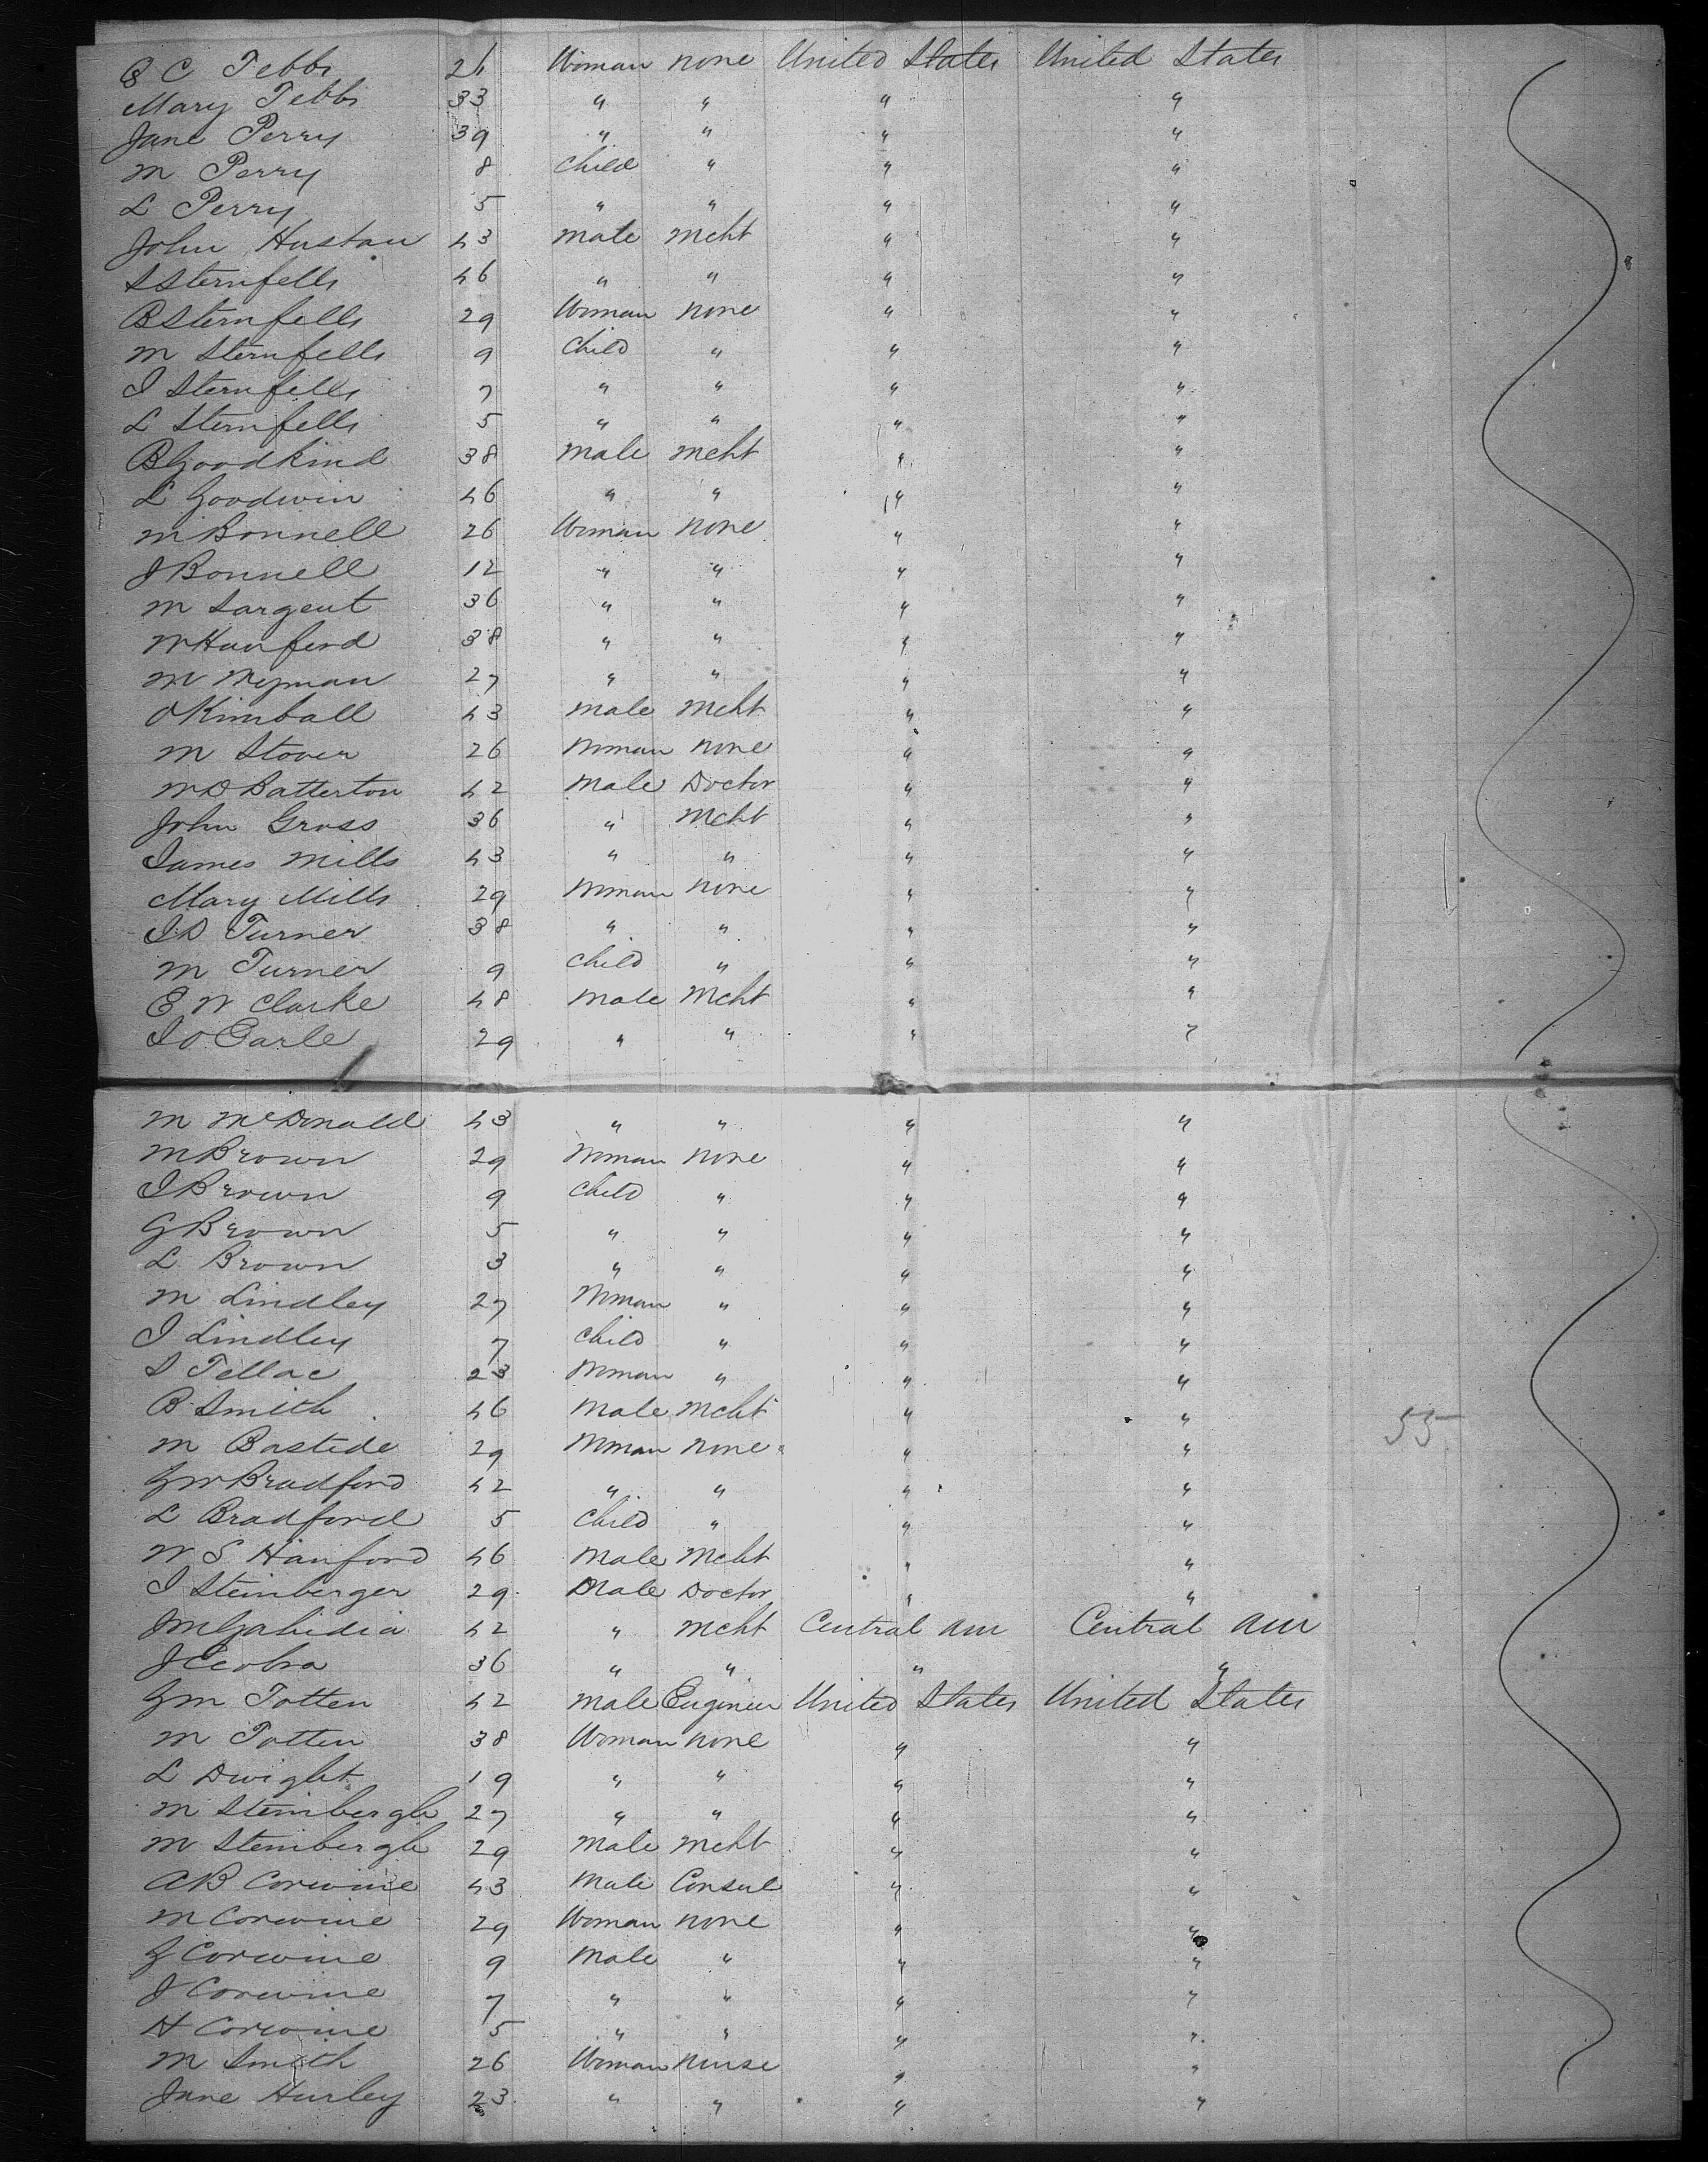 C Tebbs 26 Woman none United States United States
Mary Tebbs 33 " " " "
Jane Perry 39 " " " "
M Perry 8 child " " "
L Perry 5 " " " "
John Hustan 43 male mcht " "
S Sternfells 46 " " " "
B Sternfells 29 Woman none " "
M Sternfells 9 child " " "
I Sternfells 7 " " " "
L Sternfells 5 " " " "
B Goodkind 38 male mcht " "
L Goodwin 46 " " " "
M Bonnell 26 Woman none " "
J Bonnell 12 " " " "
M Sargent 36 " " " "
W Hanford 38 " " " "
M Wyman 27 " " " "
O Kimball 43 male mcht " "
M Stover 26 Woman none " "
W D Batterton 42 male Doctor " "
John Gross 36 " mcht " "
James Mills 43 " " " "
Mary Mills 29 Woman none " "
I D Turner 38 " " " "
M Turner 9 child " " "
E W Clarke 48 male mcht " "
I O Earle 29 " " " "
M McDonald 43 " " " "
M Brown 29 Woman none " "
I Brown 9 child " " "
G Brown 5 " " " "
L Brown 3 " " " "
M Lindley 27 Woman " " "
I Lindley 7 child " " "
S Tellac 23 Woman " " "
B Smith 46 male mcht " "
M Bastide 29 Woman none " " 55
G W Bradford 42 " " " "
L Bradford 5 child " " "
W S Hanford 46 male mcht " "
I Steinberger 29 male Doctor " "
J M Gabidia 42 " mcht Central Am Central Am
36 " " " "
G M Totten 42 male Engineer United States United States
M Totten 38 Woman none " "
L Dwight 19 " " " "
M Steinbergh 27 " " " "
M Steinbergh 29 male mcht " "
A B Corwine 43 male Consul " "
M Corwine 29 Woman none " "
G Corwine 9 male " " "
J Corwine 7 " " " "
H Corwine 5 " " " "
M Smith 26 Woman nurse " "
Jane Hurley 23 " " " "